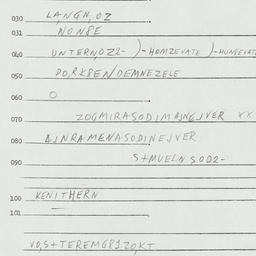 030 LANGN, OZ
031 NONSE
040 UNTERN,OZ2- )-HOMZEVATE )-HUNSEVATE
050 PO,RKSEN/OEMNEZELE
060 O
070 ZOGMIRASODIMAJNEJVER XX
080 AJNRAMENASODINEJVER
090 S+MUELN SOD2-
100 KENITHERN
101
VO,S+TEREMG81ZO,KT